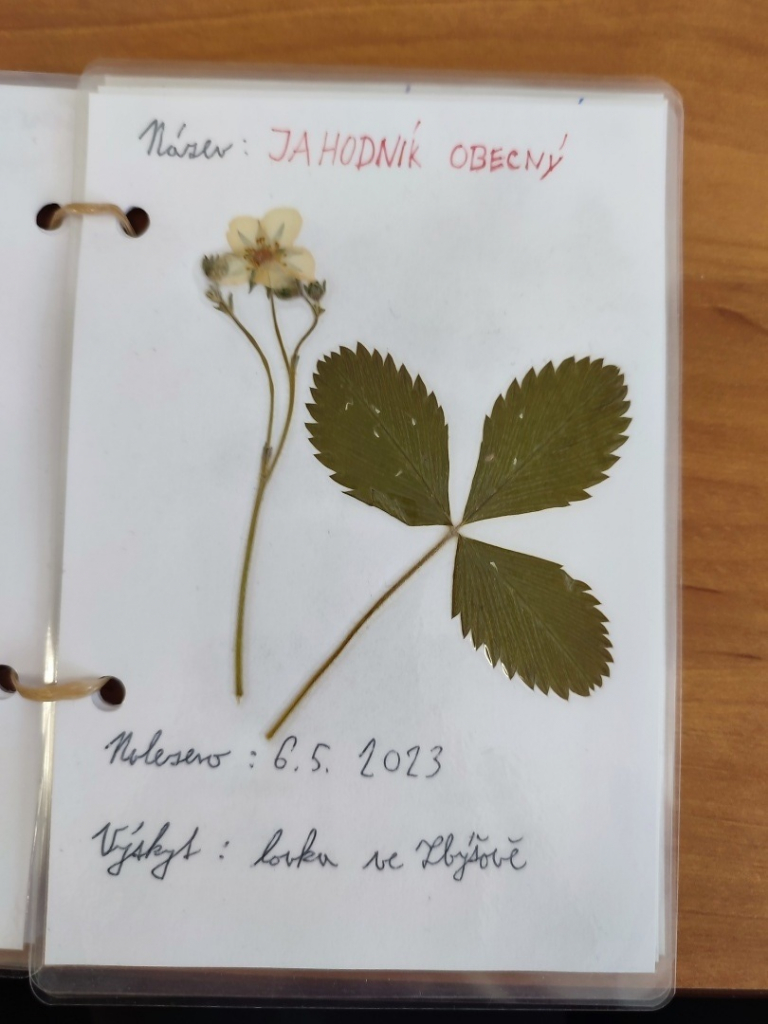 Název: JAHODNÍK OBECNÝ
Nalezeno: 6.5. 2023
Výskyt: louka ve Zbýšově